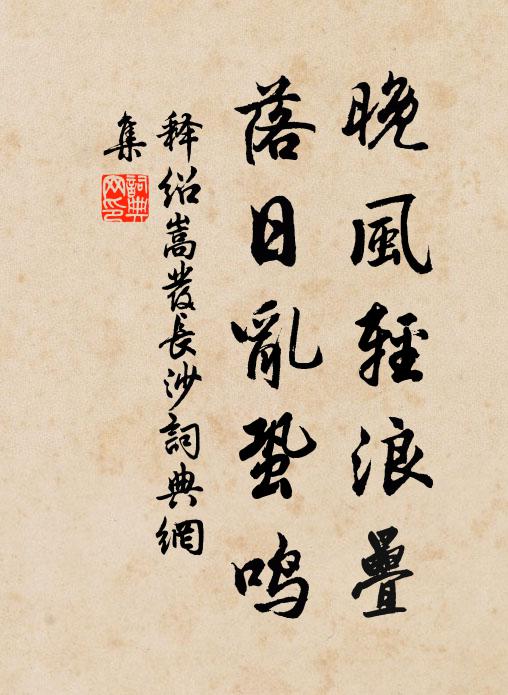 晚風輕浪疊
落日亂蛩鳴
释绍嵩發長沙詞典網
集
詞典
网印